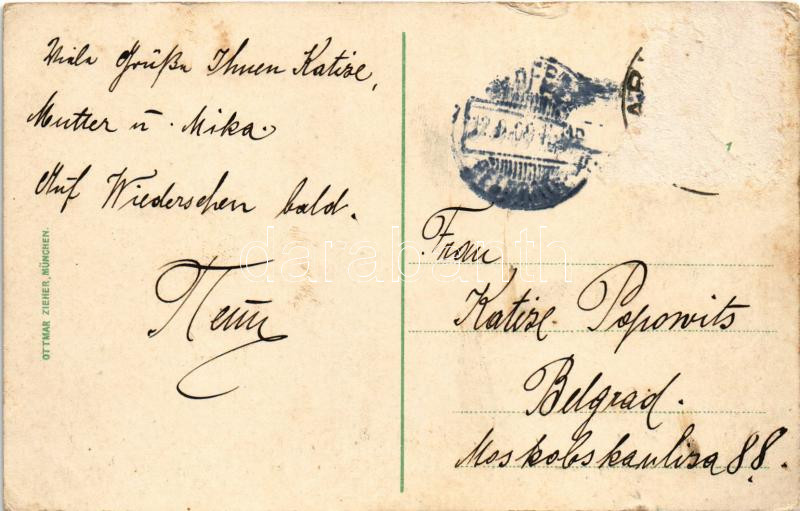 Viele Grüße Ihnen Katize,
Mutter u. Mika.
Auf Wiedersehen bald.
OTTMAR ZIEHER, MÜNCHEN.
Frau
Katize Popowits
Belgrad.
Moskobskauliza 88.
darabanth
1